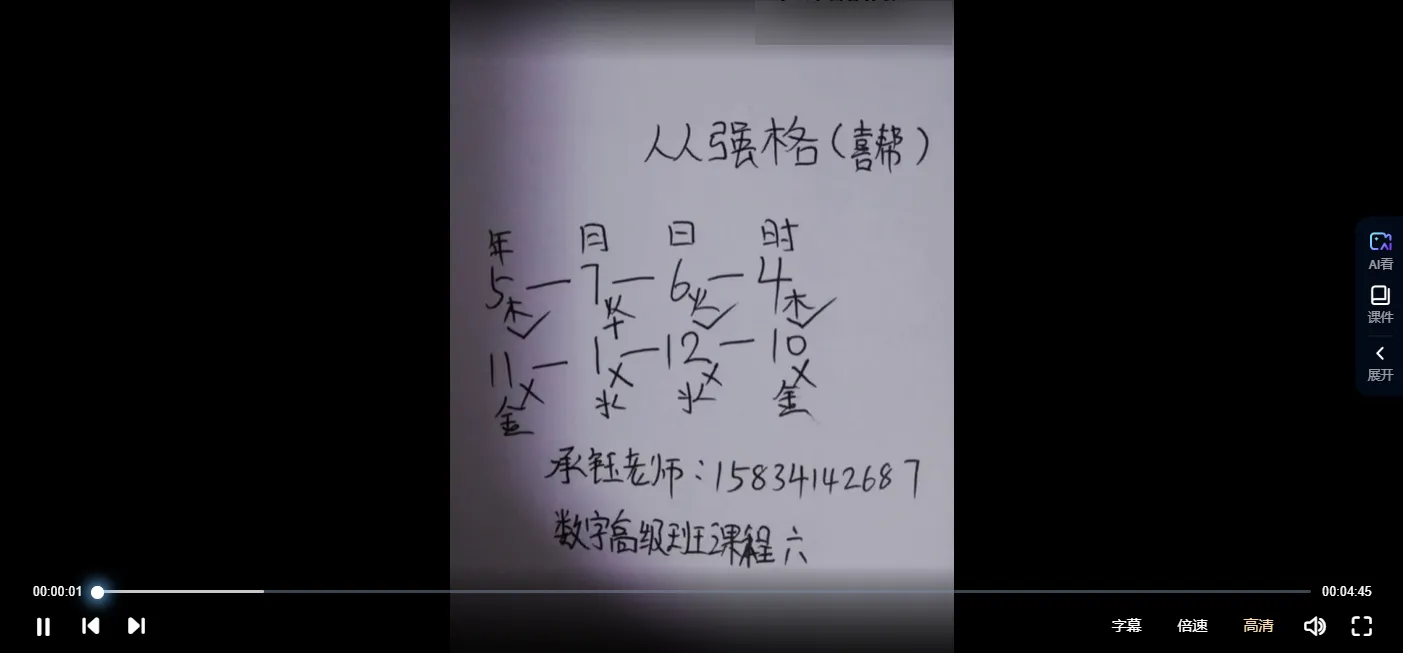 从强格（喜帮）
年 月 日 时
5 — 7 — 6 — 4
木 火 火 木
11 — 1 — 12 — 10
金 水 水 金
承钰老师：15834142687
数字高级班课程六
AI看
课件
展开
00:00:01
00:04:45
字幕 倍速 高清